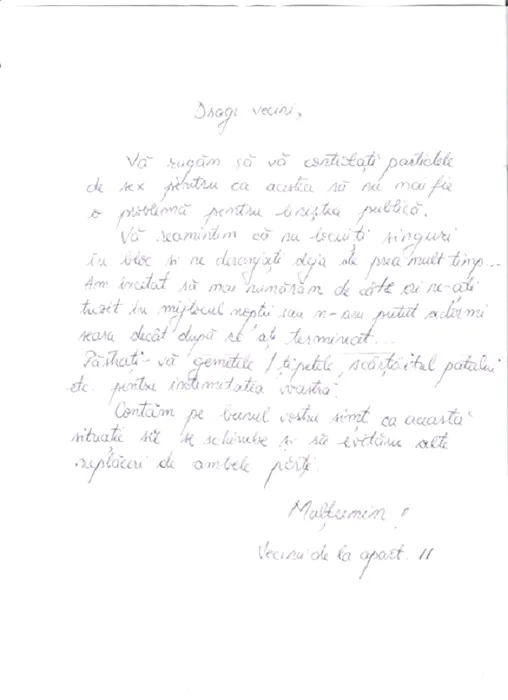 Dragi vecini,
Vă rugăm să vă controlați partidele
de sex pentru ca acestea să nu mai fie
o problemă pentru liniștea publică.
Vă reamintim că nu locuiți singuri
în bloc și ne deranjați deja de prea mult timp...
Am încetat să mai numărăm de câte ori ne-ați
trezit în mijlocul nopții sau n-am putut adormi
seara decât după ce ați terminat...
Păstrați-vă gemetele / țipetele, scârțâitul patului
etc. pentru intimitatea voastră.
Contăm pe bunul vostru simț ca această
situație să se schimbe și să evităm alte
neplăceri de ambele părți.
Mulțumim!
Vecinii de la apart. 11